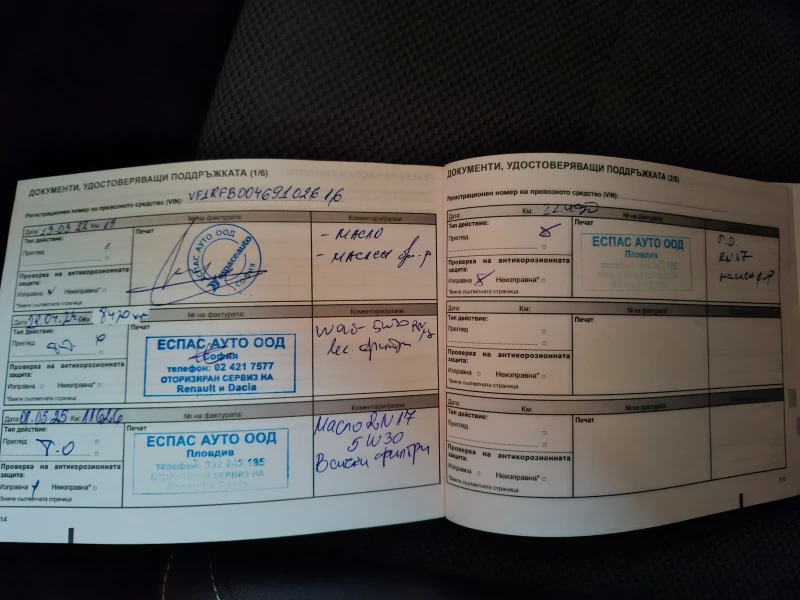 ДОКУМЕНТИ, УДОСТОВЕРЯВАЩИ ПОДДРЪЖКАТА (1/6)
Регистрационен номер на превозното средство (VIN): VF1RFB00469102616
Дата: 13.03.22 Км:
№ на фактурата:
Коментари/разни
Тип действие:
Преглед
Печат
ЕСПАС АУТО ООД
espaceauto
СОФИЯ
- МАСЛО
- МАСЛЕН фи-р
Проверка на антикорозионната
защита:
Изправна Неизправна*
*Вижте съответната страница
Дата: Км:
№ на фактурата:
Коментари/разни
Тип действие:
Преглед
Печат
ЕСПАС АУТО ООД
София
телефон: 02 421 7577
ОТОРИЗИРАН СЕРВИЗ НА
Renault и Dacia
филтри
Проверка на антикорозионната
защита:
Изправна Неизправна*
*Вижте съответната страница
Дата: 08.05.25 Км: 11626
№ на фактурата:
Коментари/разни
Тип действие:
Преглед Т.О
Печат
ЕСПАС АУТО ООД
Пловдив
телефон: 032 242 185
ОТОРИЗИРАН СЕРВИЗ НА
Renault и Dacia
Масло RN17
5W30
Всички филтри
Проверка на антикорозионната
защита:
Изправна Неизправна*
*Вижте съответната страница
14
ДОКУМЕНТИ, УДОСТОВЕРЯВАЩИ ПОДДРЪЖКАТА (2/6)
Регистрационен номер на превозното средство (VIN):
Дата: Км:
№ на фактурата:
Тип действие:
Преглед
Печат
ЕСПАС АУТО ООД
Пловдив
Т.О.
RN17
маслен ф-р
Проверка на антикорозионната
защита:
Изправна Неизправна*
*Вижте съответната страница
Дата: Км:
№ на фактурата:
Тип действие:
Преглед
Печат
Проверка на антикорозионната
защита:
Изправна Неизправна*
*Вижте съответната страница
Дата: Км:
№ на фактурата:
Тип действие:
Преглед
Печат
Проверка на антикорозионната
защита:
Изправна Неизправна*
*Вижте съответната страница